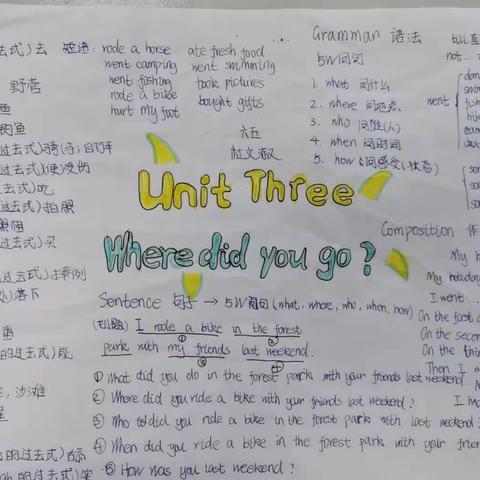 去式)去 短语: rode a horse ate fresh food
went camping went swimming
野营 went fishing took pictures
鱼 rode a bike bought gifts
hurt my foot
过去式)骑(马;自行车
过去式)(使)受伤
去式)吃
(过去式)拍照
过去式)买
落下
番
的过去式)
沙滩
六五
Unit Three
Where did you go?
Gramman 语法
5W问句
1. what 问什么
2. where 问地点
3. who 问谁(人)
4. when 问时间
5. how 问感受(状态)
till 直
not...
went
dan
swim
fish
hik
cam
ska
son
so
so
Composition 作
My h
My holiday
I went ...
On the first d
On the second
On the thin
Then I w
I ha
Sentence 句子 → 5W问句 (what, where, who, when, how)
I rode a bike in the forest
park with my friends last weekend.
① What did you do in the forest park with your friends last weekend.
② Where did you ride a bike with your friends last weekend?
③ Who did you ride a bike in the forest park with last weekend?
④ When did you ride a bike in the forest park with your frien
⑤ How was you last weekend?